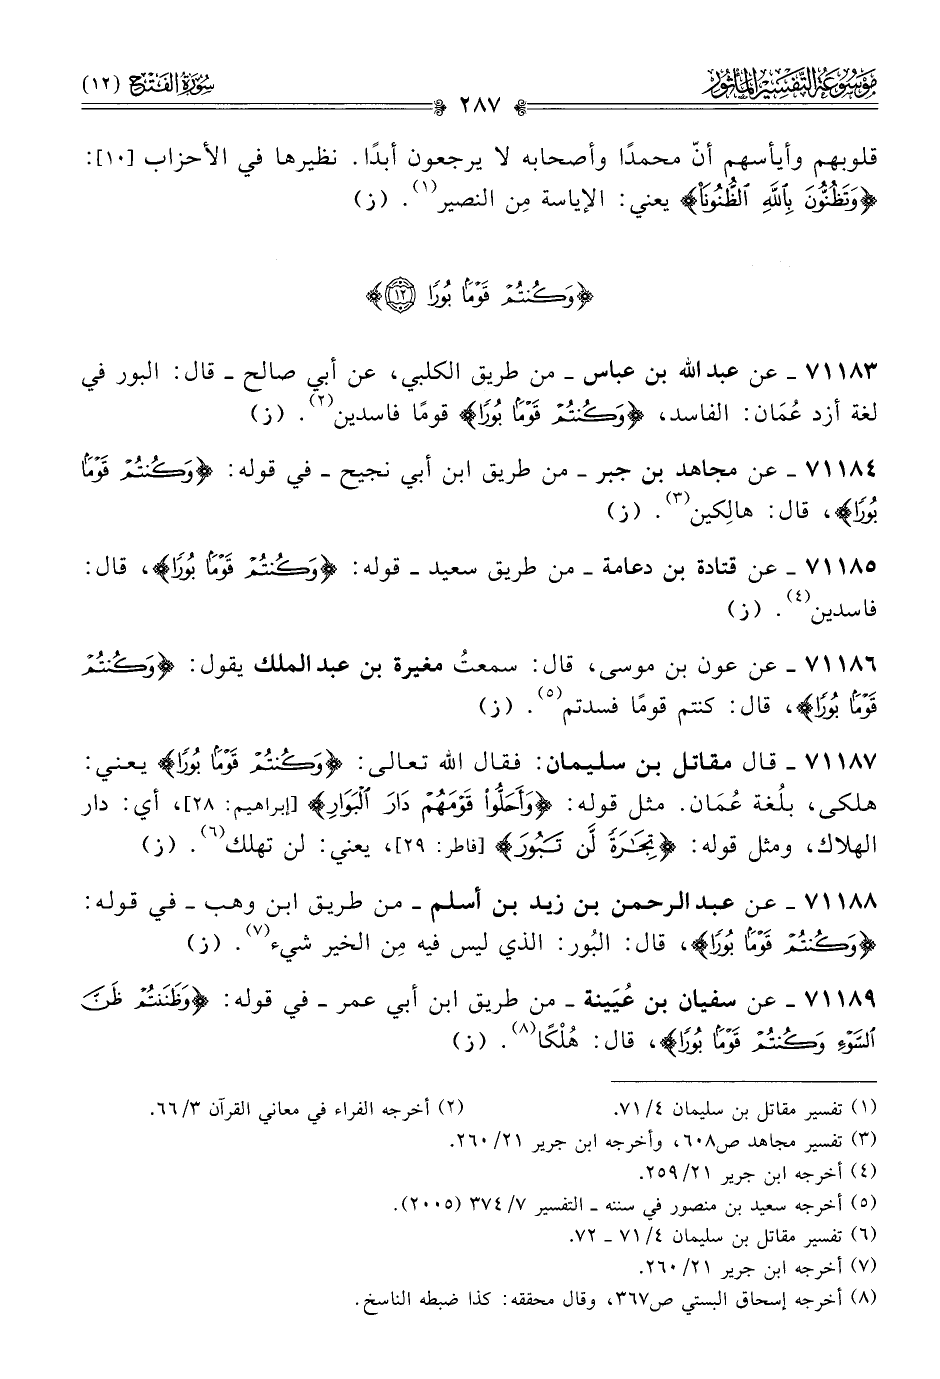 موسوعة التفسير المأثور
سورة الفتح (١٢)
٢٨٧
قلوبهم وأيأسهم أنّ محمدًا وأصحابه لا يرجعون أبدًا. نظيرها في الأحزاب [١٠]:
﴿وَتَظُنُّونَ بِٱللَّهِ ٱلظُّنُونَا۠﴾ يعني: الإياسة مِن النصير(١). (ز)
﴿وَكُنتُمْ قَوْمًۢا بُورًا ١٢﴾
٧١١٨٣ ـ عن عبد الله بن عباس ـ من طريق الكلبي، عن أبي صالح ـ قال: البور في
لغة أزد عُمَان: الفاسد، ﴿وَكُنتُمْ قَوْمًۢا بُورًا﴾ قومًا فاسدين(٢). (ز)
٧١١٨٤ ـ عن مجاهد بن جبر ـ من طريق ابن أبي نجيح ـ في قوله: ﴿وَكُنتُمْ قَوْمًۢا
بُورًا﴾، قال: هالِكين(٣). (ز)
٧١١٨٥ ـ عن قتادة بن دعامة ـ من طريق سعيد ـ قوله: ﴿وَكُنتُمْ قَوْمًۢا بُورًا﴾، قال:
فاسدين(٤). (ز)
٧١١٨٦ ـ عن عون بن موسى، قال: سمعتُ مغيرة بن عبد الملك يقول: ﴿وَكُنتُمْ
قَوْمًۢا بُورًا﴾، قال: كنتم قومًا فسدتم(٥). (ز)
٧١١٨٧ ـ قال مقاتل بن سليمان: فقال الله تعالى: ﴿وَكُنتُمْ قَوْمًۢا بُورًا﴾ يعني:
هلكى، بلُغة عُمَان. مثل قوله: ﴿وَأَحَلُّوا۟ قَوْمَهُمْ دَارَ ٱلْبَوَارِ﴾ [إبراهيم: ٢٨]، أي: دار
الهلاك، ومثل قوله: ﴿تِجَٰرَةً لَّن تَبُورَ﴾ [فاطر: ٢٩]، يعني: لن تهلك(٦). (ز)
٧١١٨٨ ـ عن عبد الرحمن بن زيد بن أسلم ـ من طريق ابن وهب ـ في قوله:
﴿وَكُنتُمْ قَوْمًۢا بُورًا﴾، قال: البُور: الذي ليس فيه مِن الخير شيء(٧). (ز)
٧١١٨٩ ـ عن سفيان بن عُيَينة ـ من طريق ابن أبي عمر ـ في قوله: ﴿وَظَنَنتُمْ ظَنَّ
ٱلسَّوْءِ وَكُنتُمْ قَوْمًۢا بُورًا﴾، قال: هُلْكًا(٨). (ز)
(١) تفسير مقاتل بن سليمان ٤/ ٧١. (٢) أخرجه الفراء في معاني القرآن ٣/ ٦٦.
(٣) تفسير مجاهد ص٦٠٨، وأخرجه ابن جرير ٢١/ ٢٦٠.
(٤) أخرجه ابن جرير ٢١/ ٢٥٩.
(٥) أخرجه سعيد بن منصور في سننه ـ التفسير ٧/ ٣٧٤ (٢٠٠٥).
(٦) تفسير مقاتل بن سليمان ٤/ ٧١ ـ ٧٢.
(٧) أخرجه ابن جرير ٢١/ ٢٦٠.
(٨) أخرجه إسحاق البستي ص٣٦٧، وقال محققه: كذا ضبطه الناسخ.